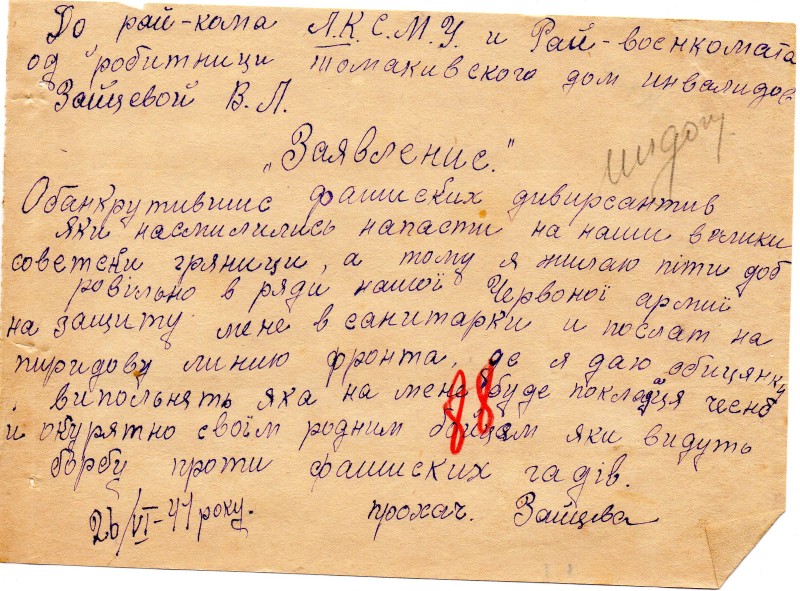 До рай-кома Л.К.С.М.У. и Рай-военкомата
од робитници томакивского дом инвалидов
Зайцевой В.Л.
„Заявление."
Обанкрутившис фашиских дивирсантив
яки насмилились напасти на наши велики
советски гряници, а тому я жилаю піти доб
ровільно в ряди нашої Червоної армії
на защиту мене в санитарки и послат на
пиридову линию фронта, де я даю обицянку
випольнять яка на мене буде покладця чесно
и окурятно своїм родним бойцам яки видуть
борбу проти фашиских гадів.
26/VI-41 року. прохач. Зайцева
88